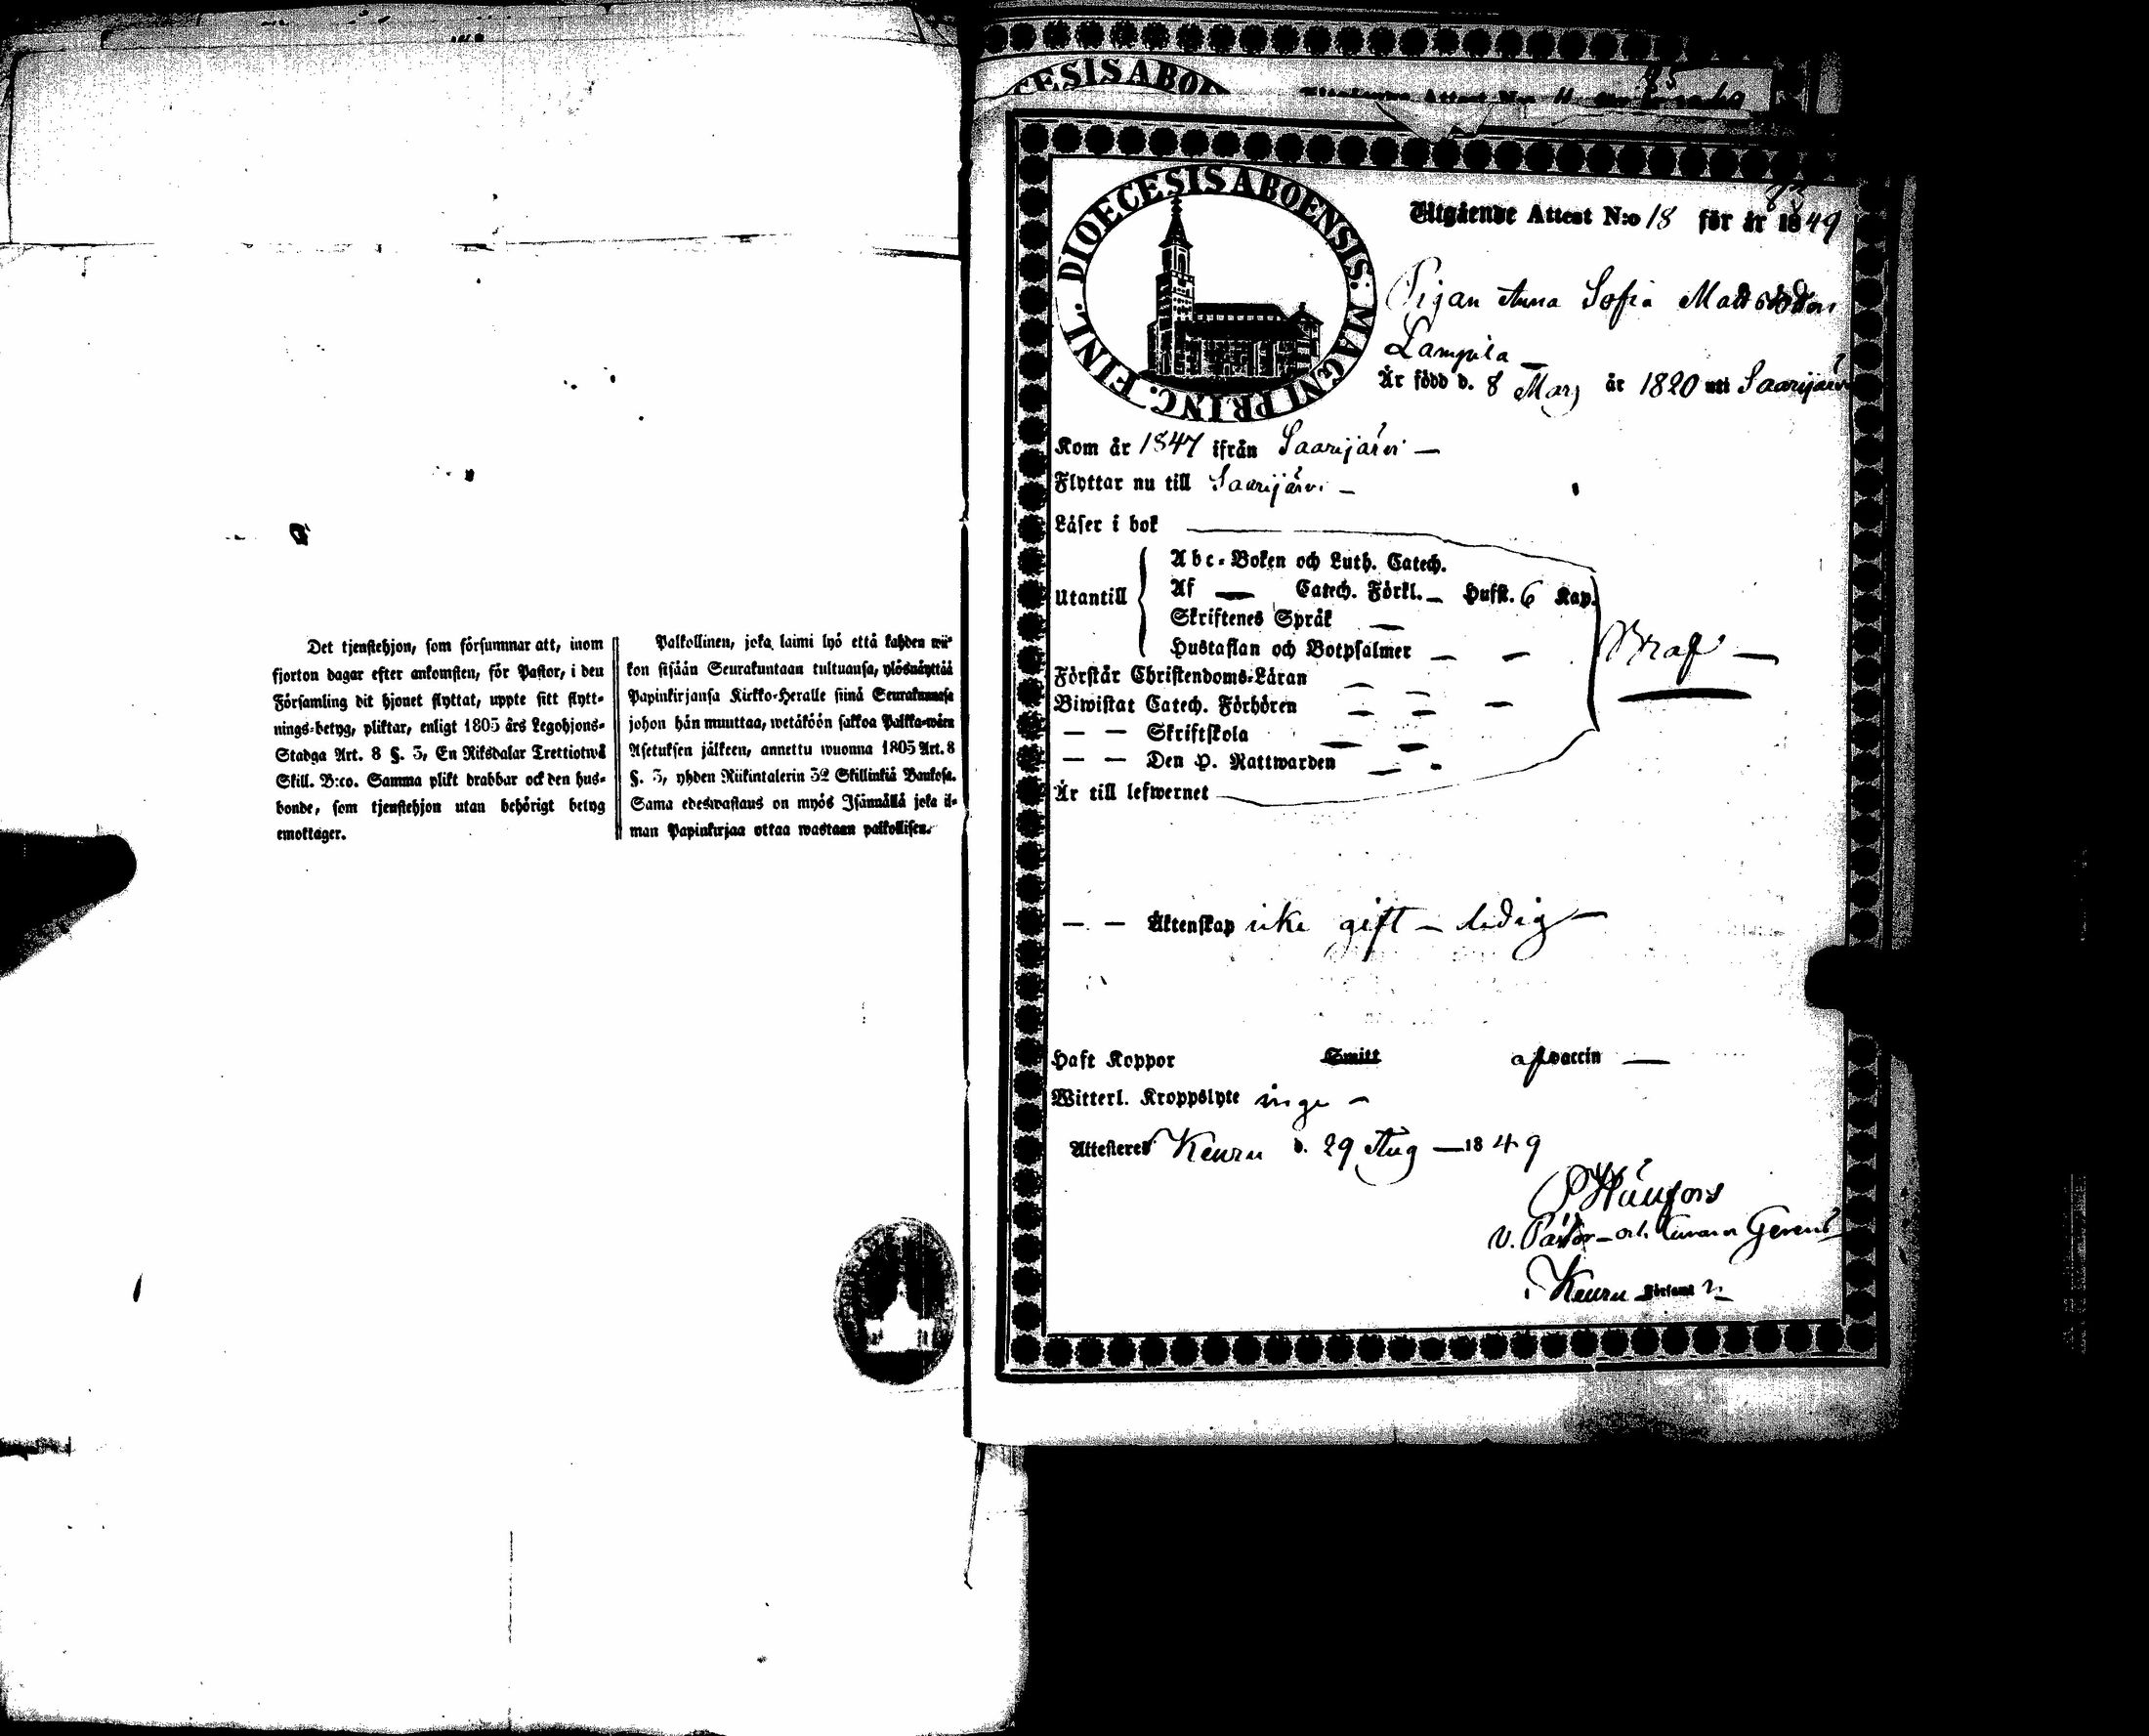 Det tjenstehjon, som försummar att, inom
fjorton dagar efter ankomsten, för Pastor, i den
Församling dit hjonet flyttat, uppte sitt flytt-
nings-betyg, pliktar, enligt 1805 års Legohjons-
Stadga Art. 8 §. 3, En Riksdalar Trettiotwå
Skill. B:co. Samma plikt drabbar ock den hus-
bonde, som tjenstehjon utan behörigt betyg
emottager.
Palkollinen, joka laimi lyö että kahden wii-
kon sisään Seurakuntaan tultuansa, ylösnäyttää
Papinkirjansa Kirkko-Heralle siinä Seurakunnasa
johon hän muuttaa, wetäköön sakkoa Palkka-wäen
Asetuksen jälkeen, annettu wuonna 1805 Art. 8
§. 3, yhden Riikintalerin 32 Skillinkiä Bankosa.
Sama edeswastaus on myös Isännällä joka il-
man Papinkirjaa ottaa wastaan palkollisen.
CESIS ABO
DIOECESIS ABOENSIS. MAGNI PRINC. FINL.
Utgående Attest N:o 18 för år 1849
Pigan Anna Sofia
Lampila —
År född d. 8 Mars år 1820 uti Saarijärvi
Kom år 1847 ifrån Saarijärvi —
Flyttar nu till Saarijärvi —
Läser i bok
Utantill
Abc-Boken och Luth. Catech.
Af — Catech. Förkl. — Hufst. 6 Kap.
Skriftenes Språk —
Hustaflan och Botpsalmer — —
Braf —
Förstår Christendoms-Läran — —
Biwistat Catech. Förhören — — —
— — Skriftskola — —
— — Den H. Nattwarden — -
År till lefwernet
— — Äktenskap icke gift — ledig —
Haft Koppor Smitt af vaccin —
Witterl. Kroppslyte inge —
Attesteres Keuru d. 29 Aug — 1849
V. Pastor — och Gerent
Keuru Församl